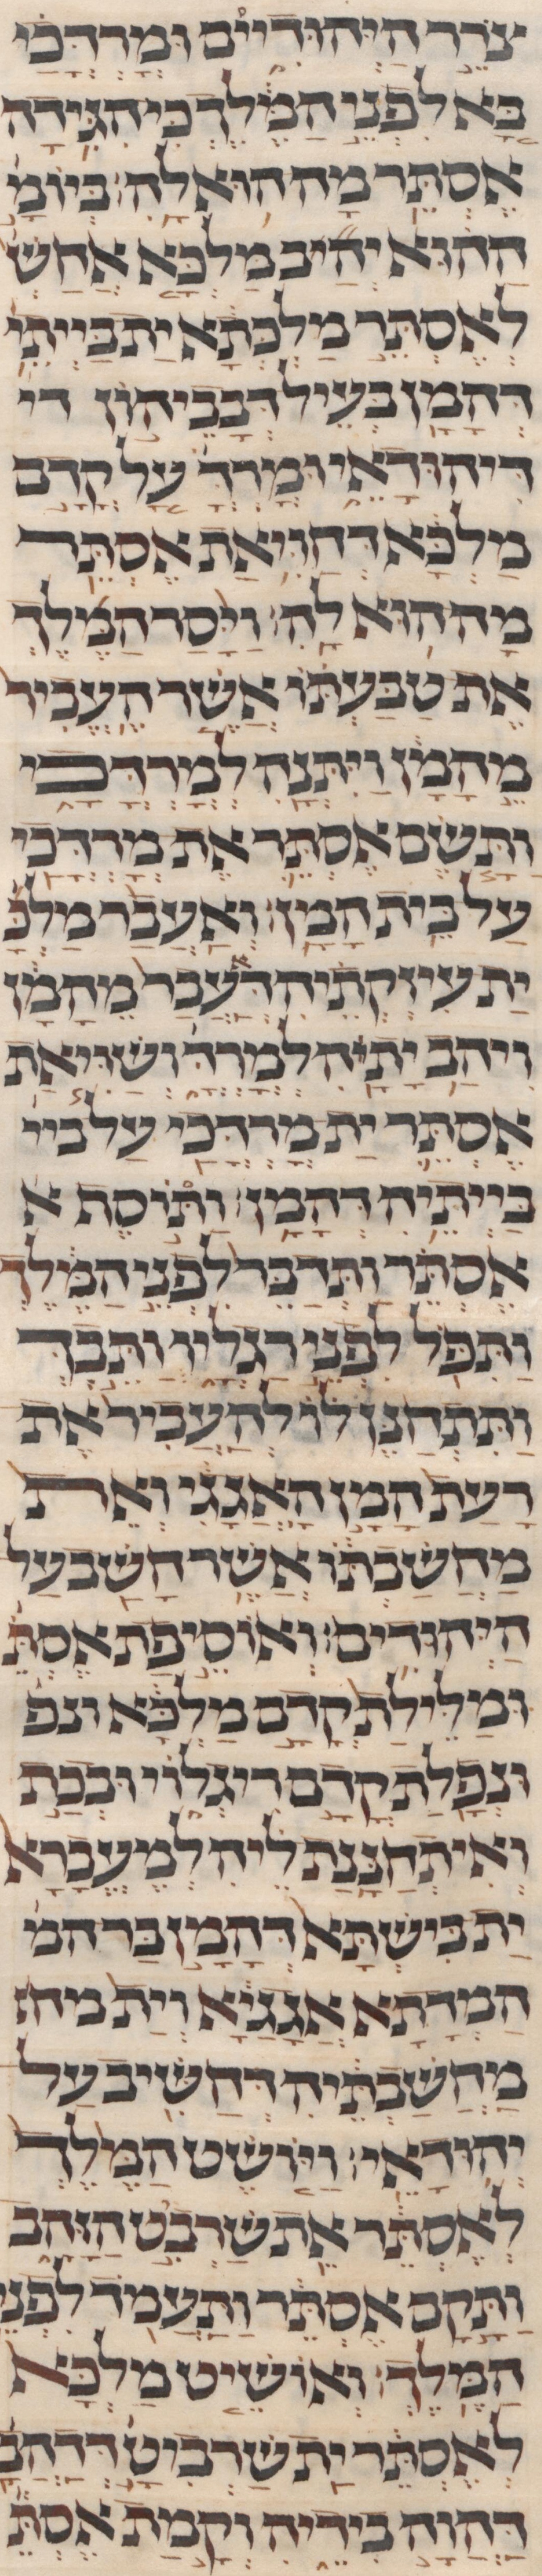 צֹרֵר הַיְּהוּדִיִּים וּמָרְדֳּכַי
בָּא לִפְנֵי הַמֶּלֶךְ כִּי הִגִּידָה
אֶסְתֵּר מַה הוּא לָהּ׃ בְּיוֹמָ
הַהוּא יְהַיב מַלְכָּא אֲחַשׁ
לְאֶסְתֵּר מַלְכְּתָא יַת בֵּייתֵי
דְּהָמָן בְּעֵיל דְּבָבֵיהוֹן די
דִּיהוּדָאֵי וּמָרְדֳּ עָל קֳדָם
מַלְכָּא דְּחַוִּיאַת אֶסְתֵּר
מַה הוּא לַהּ׃ וַיָּסַר הַמֶּלֶךְ
אֶת טַבַּעְתּוֹ אֲשֶׁר הֶעֱבִיר
מֵהָמָן וַיִּתְּנָהּ לְמָרְדֳּכָי
וַתָּשֶׂם אֶסְתֵּר אֶת מָרְדֳּכַי
עַל בֵּית הָמָן׃ וְאַעֲבַר מַלְכָּ
יַת עִיזְקְתֵיהּ דְּאַעֲבַר מֵהָמָן
וִיהַב יָתֵיהּ לְמָרְדֳּ וְשַׁוִּיאַת
אֶסְתֵּר יַת מָרְדֳּכַי עַל ביי
בֵּייתֵיהּ דְּהָמָן׃ וַתּוֹסֶף א
אֶסְתֵּר וַתְּדַבֵּר לִפְנֵי הַמֶּלֶךְ
וַתִּפֹּל לִפְנֵי רַגְלָיו וַתֵּבְךְּ
וַתִּתְחַנֶּן לוֹ לְהַעֲבִיר אֶת
רָעַת הָמָן הָאֲגָגִי וְאֵת
מַחֲשַׁבְתּוֹ אֲשֶׁר חָשַׁב עַל
הַיְּהוּדִים׃ וְאוֹסֵיפַת אֶסְתֵּ
וּמַלֵּילַת קֳדָם מַלְכָּא ונפ
וּנְפַלַת קֳדָם רִיגְלוֹי וּבְכַת
וְאִיתְחַנַּנַת לֵיהּ לְמֶעֱבְרָא
יַת בִּישְׁתָּא דְּהָמָן בַּר המ
הַמְּדָתָא אֲגָגָיָא וְיַת מח
מַחֲשַׁבְתֵּיהּ דְּחַשֵּׁיב עַל
יְהוּדָאֵי׃ וַיּוֹשֶׁט הַמֶּלֶךְ
לְאֶסְתֵּר אֵת שַׁרְבִט הַזָּהָב
וַתָּקָם אֶסְתֵּר וַתַּעֲמֹד לִפְנֵי
הַמֶּלֶךְ׃ וְאוֹשֵׁיט מַלְכָּא
לְאֶסְתֵּר יַת שַׁרְבִיט דְּדַהֲבָ
דַּהֲוָה בִידֵיהּ וְקָמַת אֶסְתֵּ